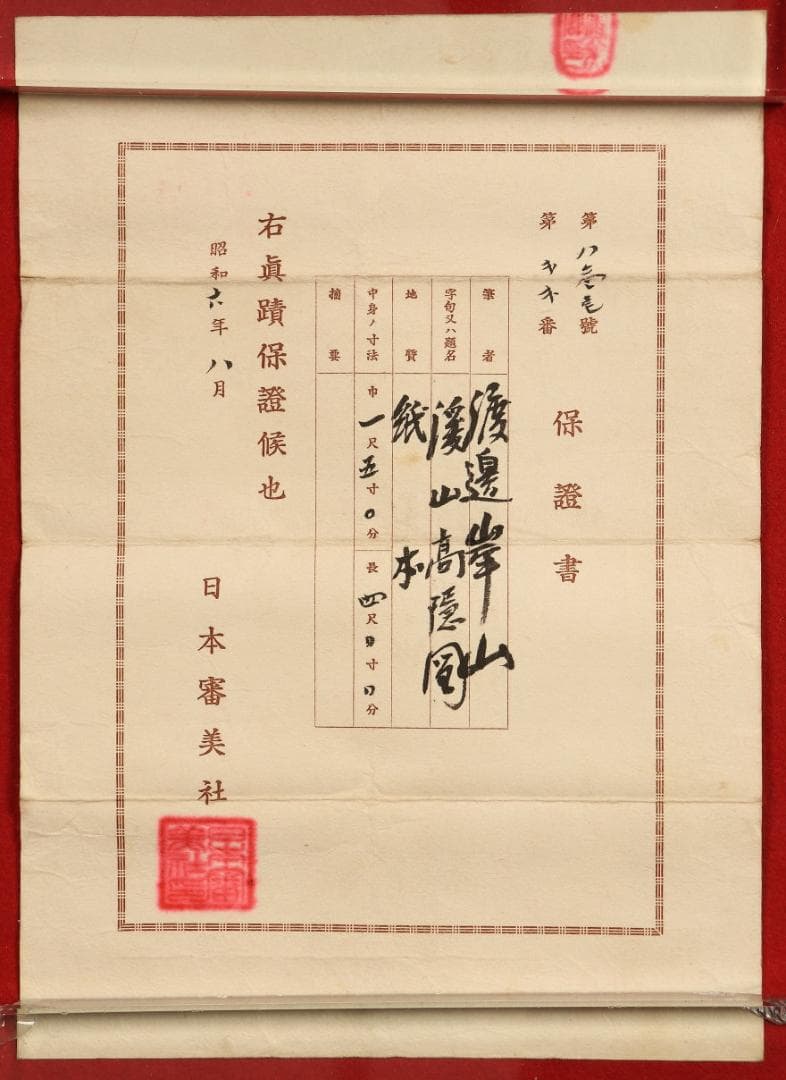 第 號
第 番
保證書
筆者 渡邊崋山
字句又ハ題名 溪山高隱圖
地質 紙本
中身ノ寸法 巾一尺五寸0分 長四尺 寸 分
摘要
右眞蹟保證候也
昭和六年八月
日本審美社